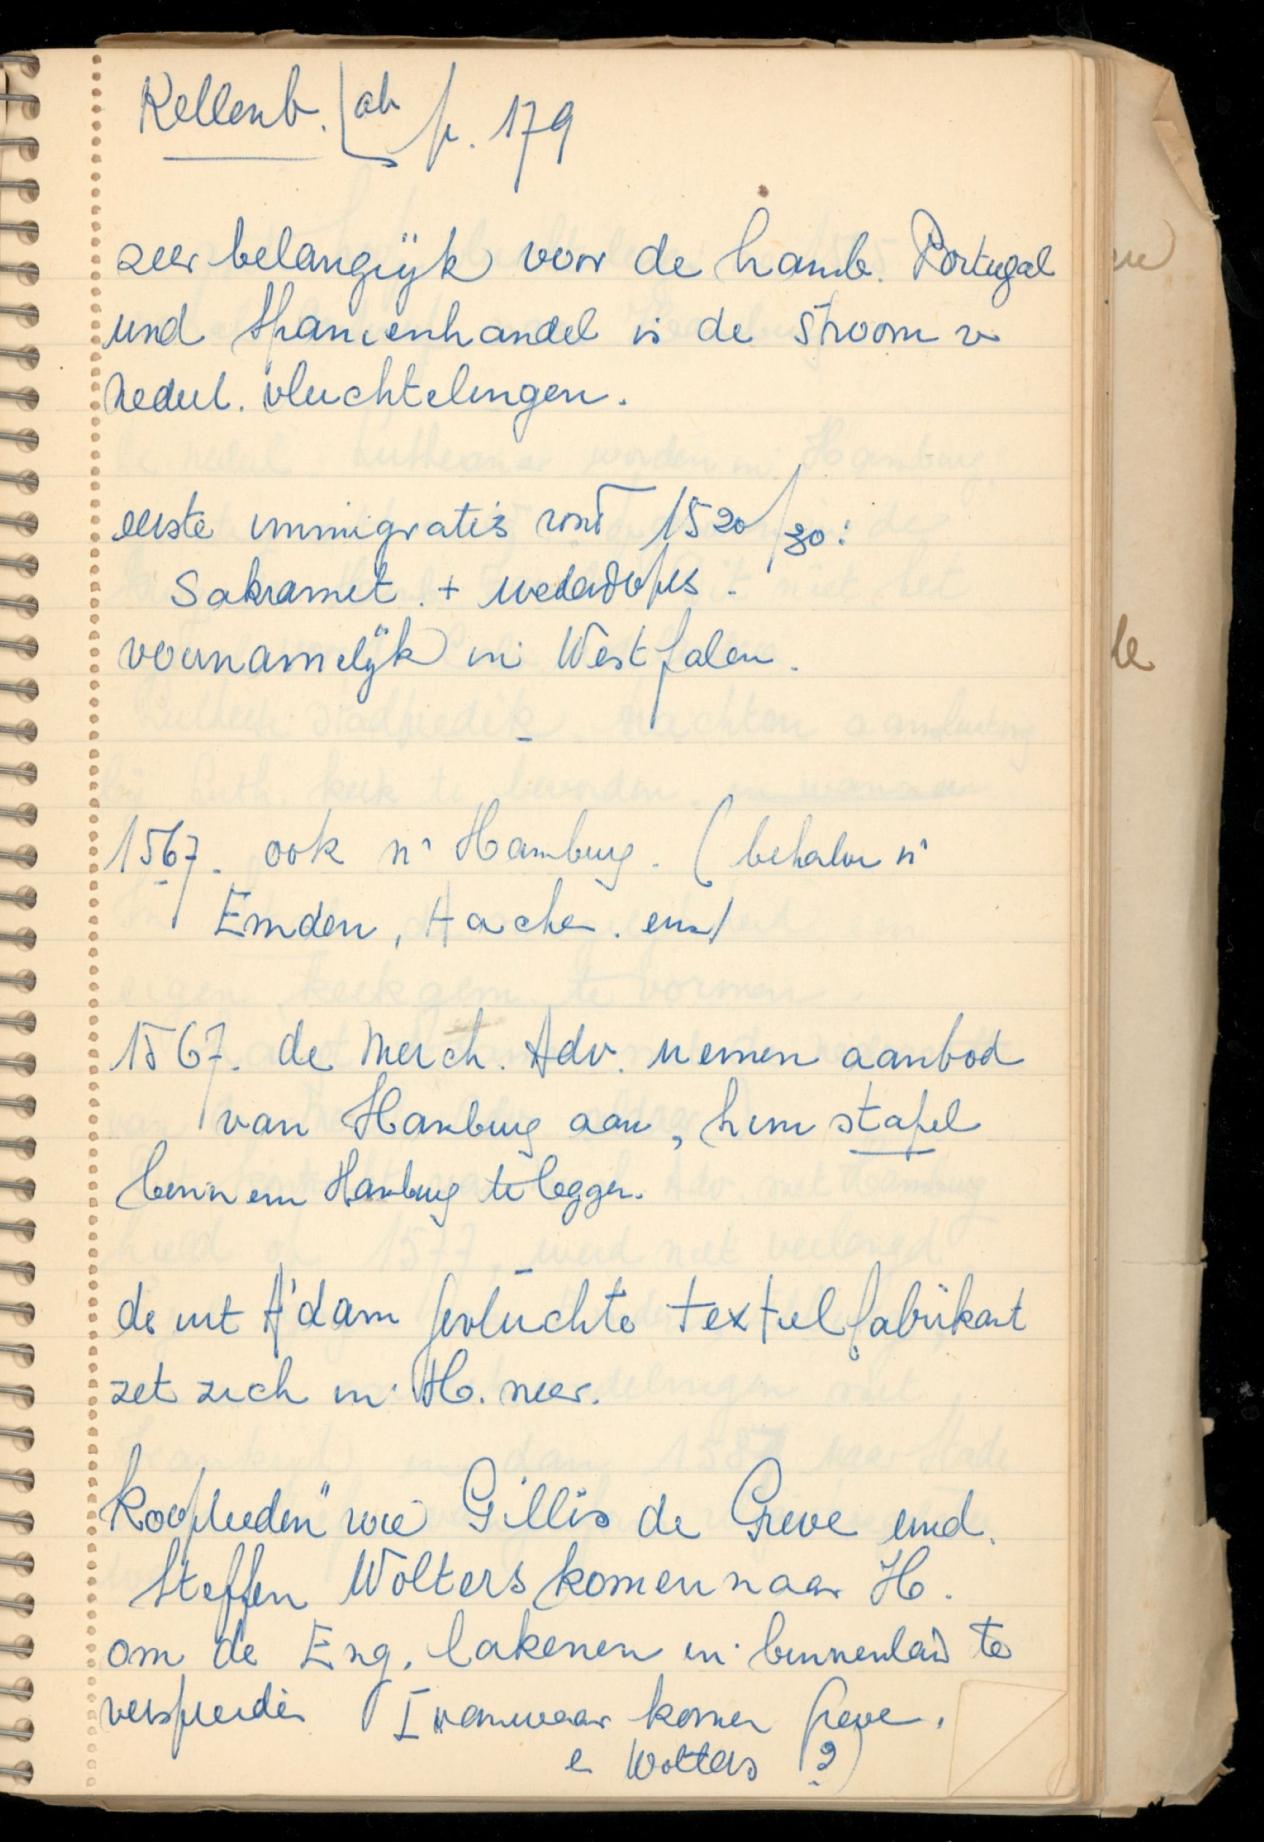 Kellenb. [ab p. 179
zeer belangrijk voor de hamb. Portugal
und Spanienhandel is de stroom v
nederl. vluchtelingen.
eerste immigratie rond 1520/30:
Sakrament. + wederdopers.
voornamelijk in Westfalen.
1567. ook in Hamburg. (behalve in
Emden, Aachen. enz)
1567. de Merch. Adv. nemen aanbod
van Hamburg aan, hun stapel
binnen Hamburg te leggen.
de uit A'dam gevluchte textielfabrikant
zet zich in H. neer.
kooplieden" wie Gillis de Greve und.
Steffen Wolters komen naar H.
om de Eng. lakenen in binnenland te
verspreiden ( vanwaar komen Greve.
en Wolters ?)